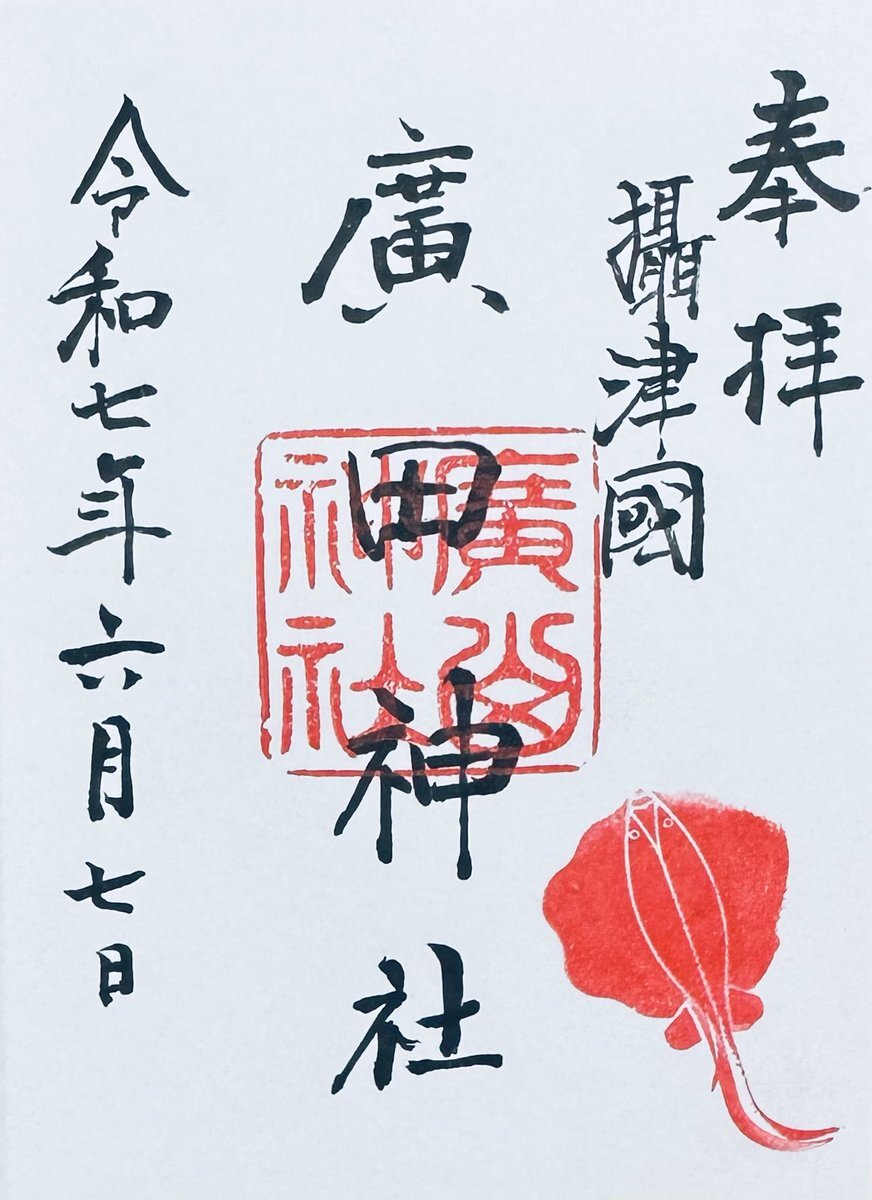 奉拝
攝津國
廣田神社
廣
神社
令和七年六月七日